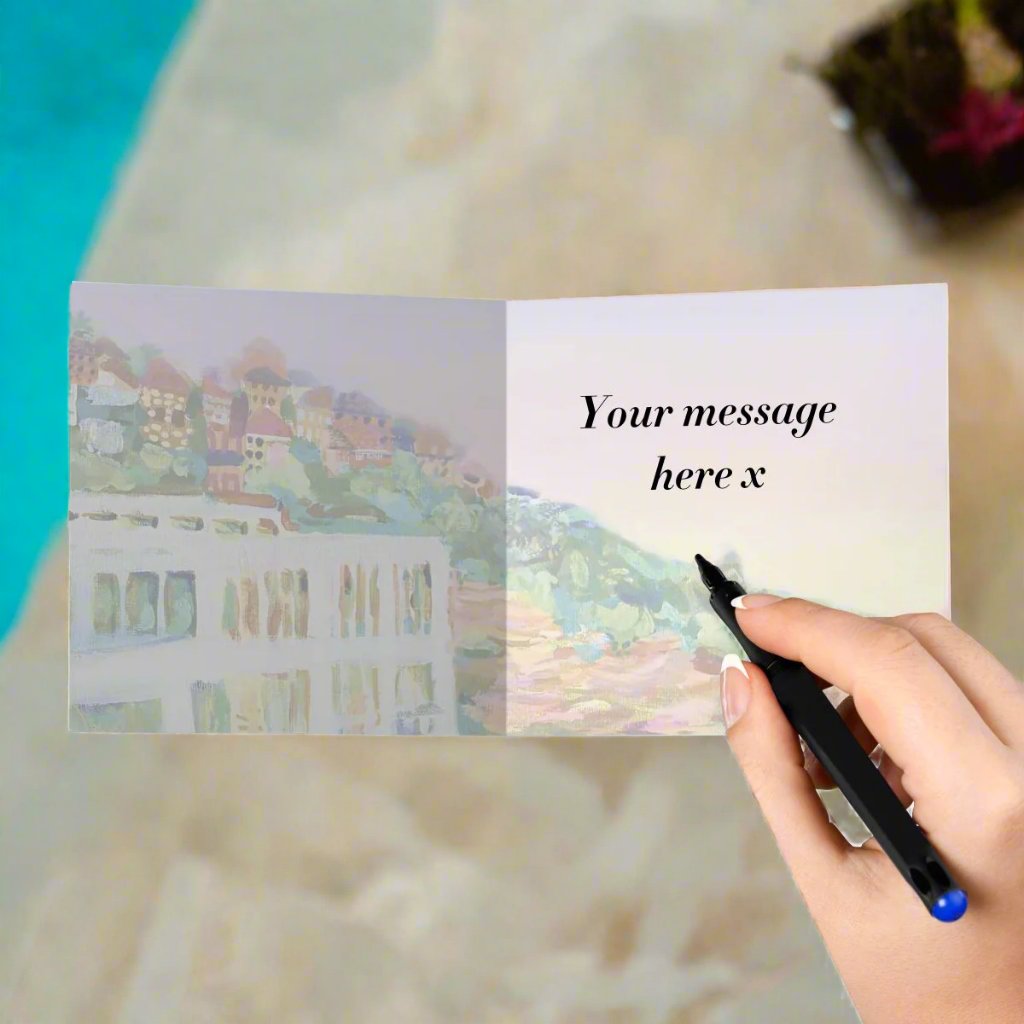 Your message
here x